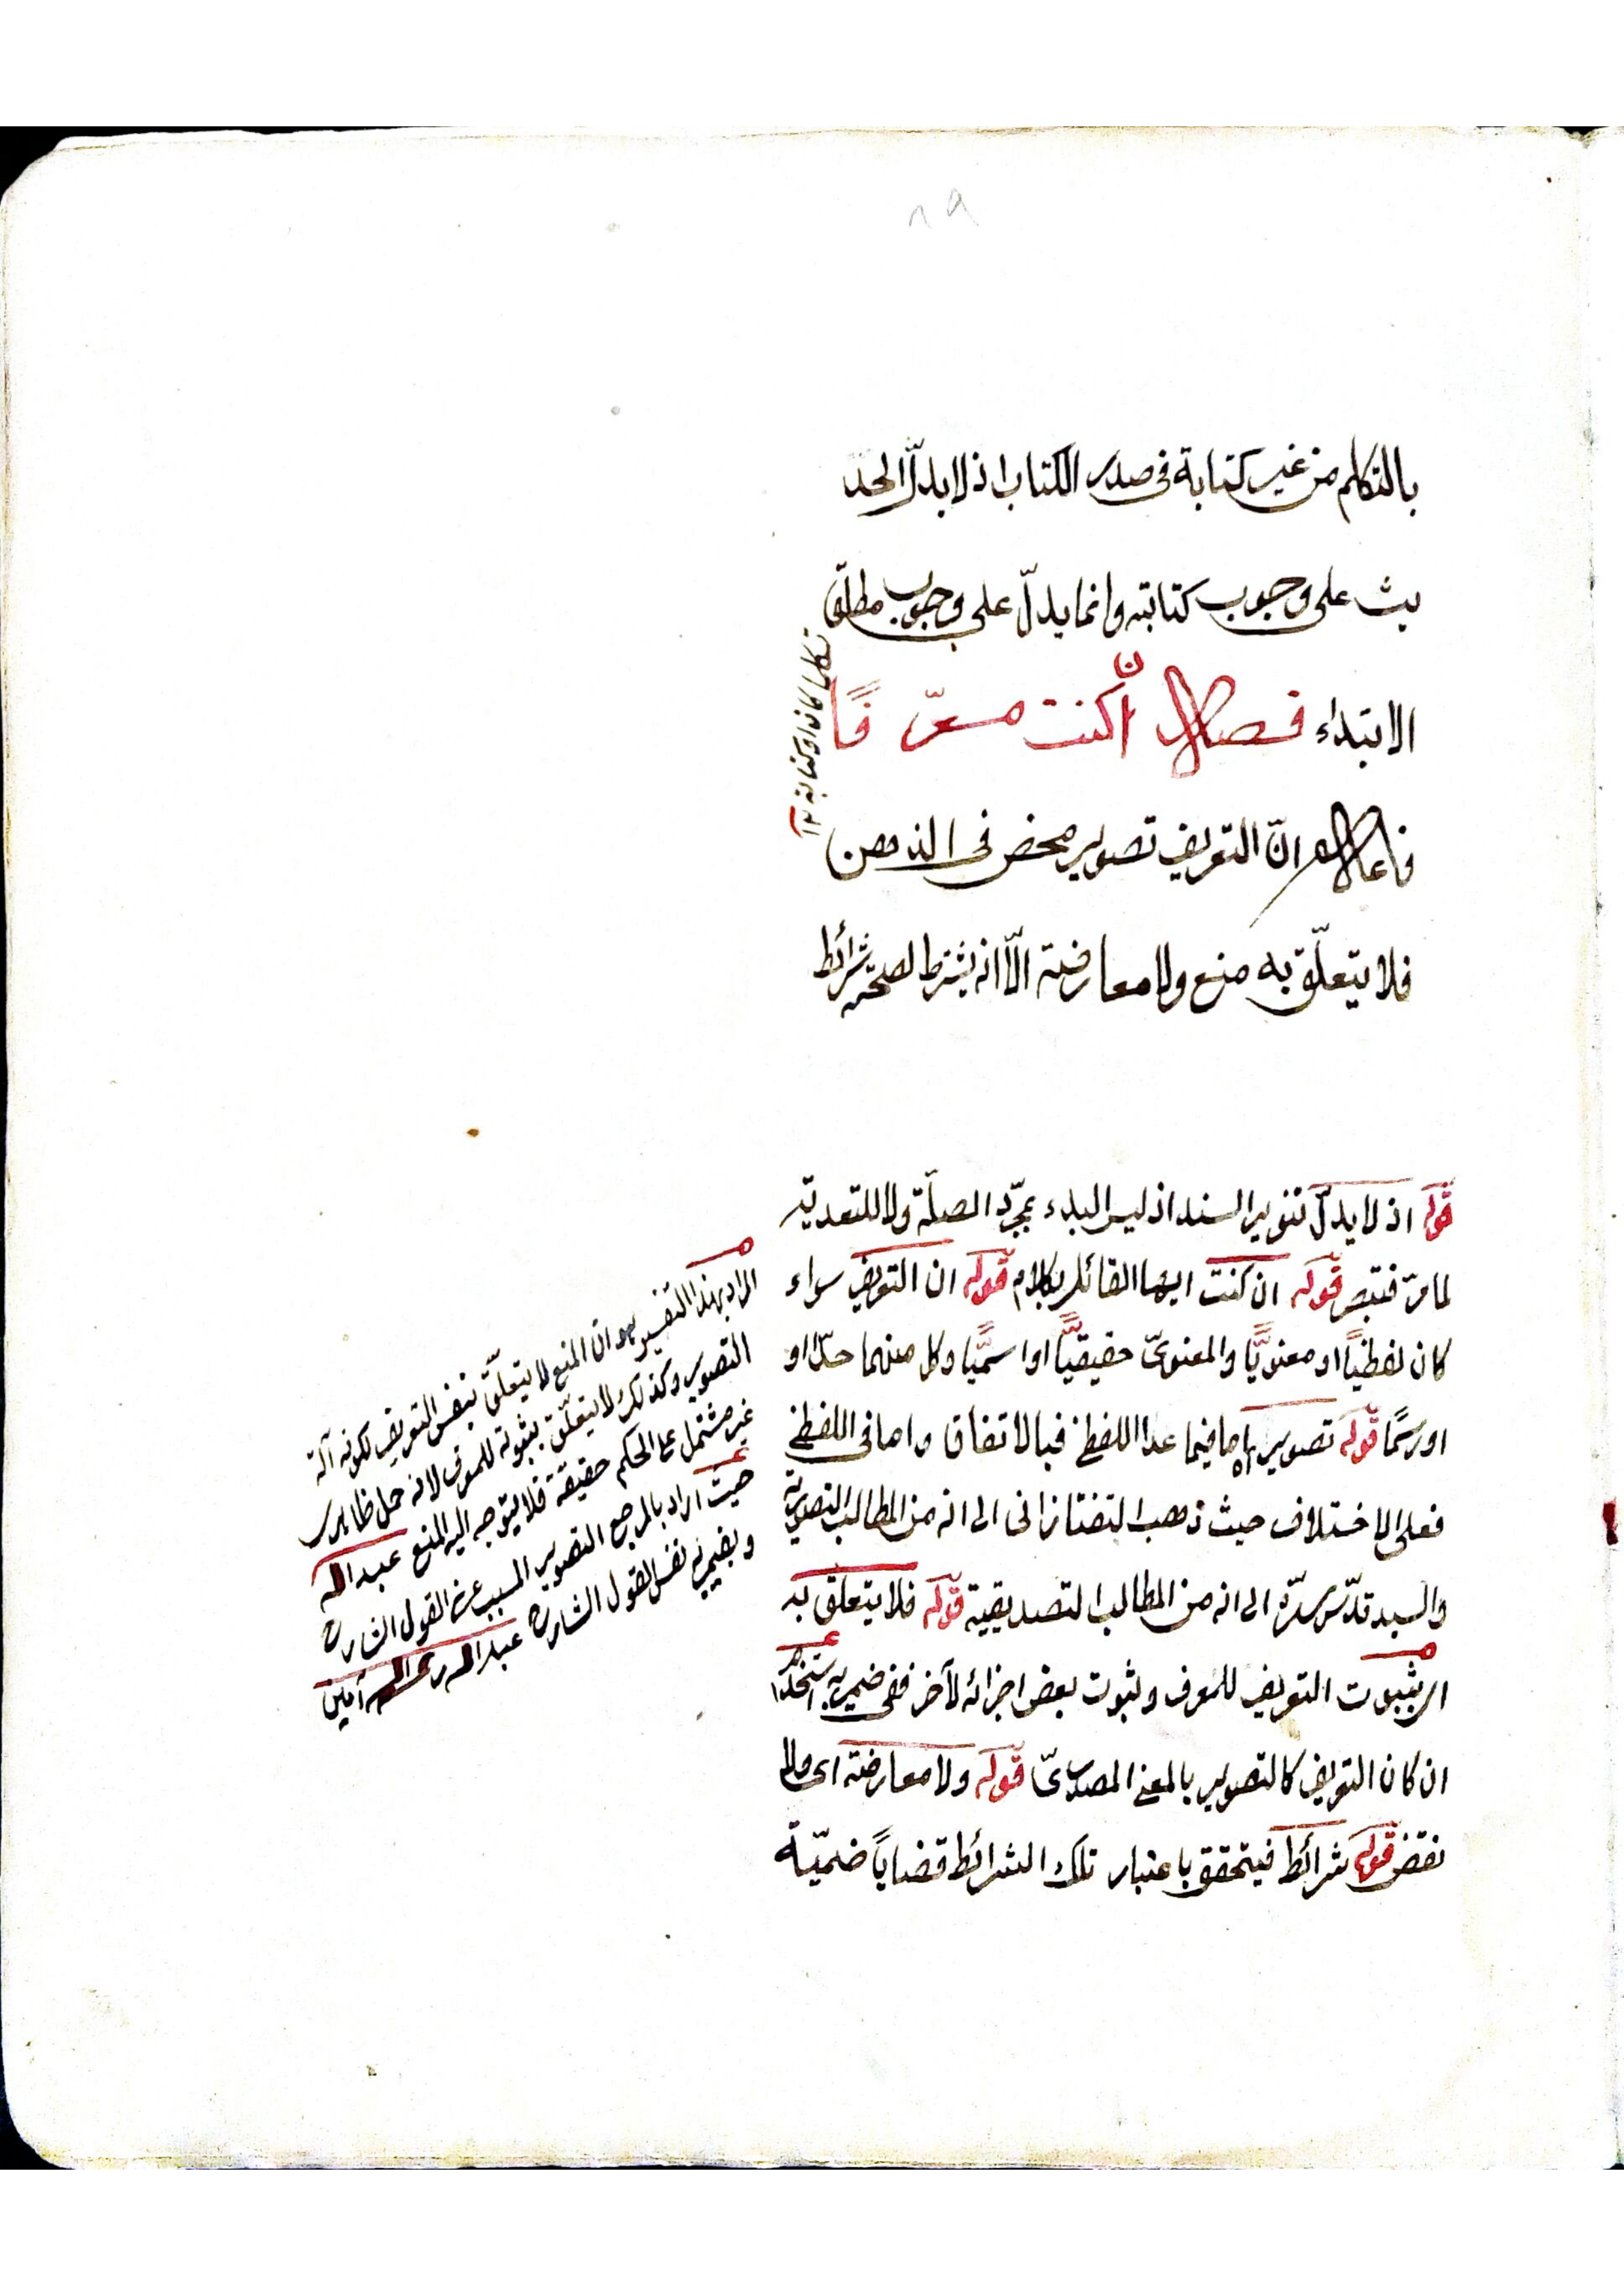 ٨٩
بالتكلم من غير كتابة فى صدر الكتاب اذ لا يدلّ الحد
يث على وجوب كتابته وانما يدلّ على وجوب مطلق
الابتداء فصل ان كنت معرّفًا
تكلما كان او كتابة ١٢
فاعلم انّ التعريف تصوير محض فى الذهن
فلا يتعلّق به منع ولا معارضة الّا انه يشترط لصحّته شرائط
قوله اذ لا يدلّ تنوير السند اذ ليس البدء بمجرّد الصلّة ولا للتعدية
لما مرّ فتبصر قوله ان كنت ايها القائل بكلام قوله ان التعريف سواء
كان لفظيّاً او معنويًّا والمعنوىّ حقيقيًّا او اسميًّا وكل منهما حدّا او
او رسمًا قوله تصوير اه اما فيما عدا اللفظى فبالاتفاق واما فى اللفظى
فعلى الاختلاف حيث ذهب التفتازانى الى انه من المطالب التصورية
والسيد قدّس سرّه الى انه من المطالب التصديقية قوله فلا يتعلق به
اى بثبوت التعريف للمعرف وثبوت بعض اجزائه لآخر ففى ضمير به استخدام
ان كان التعريف كالتصوير بالمعنى المصدرىّ قوله ولا معارضة اى ولا
نقض قوله شرائط فيتحقق باعتبار تلك الشرائط قضاياً ضمنيّة
المراد بهذا التفسير هو ان المنع لا يتعلّق بنفس التعريف لكونه آلة
التصوير وكذلك لا يتعلّق بثبوته للمعرف لانه حمل ظاهرى
غير مشتمل على الحكم حقيقة فلا يتوجه اليه المنع عبد الله
حيث اراد بالمرجع التصوير المسبب عن القول الشارح
وبضميره نفس القول الشارح عبد الله رحمه الله آمين